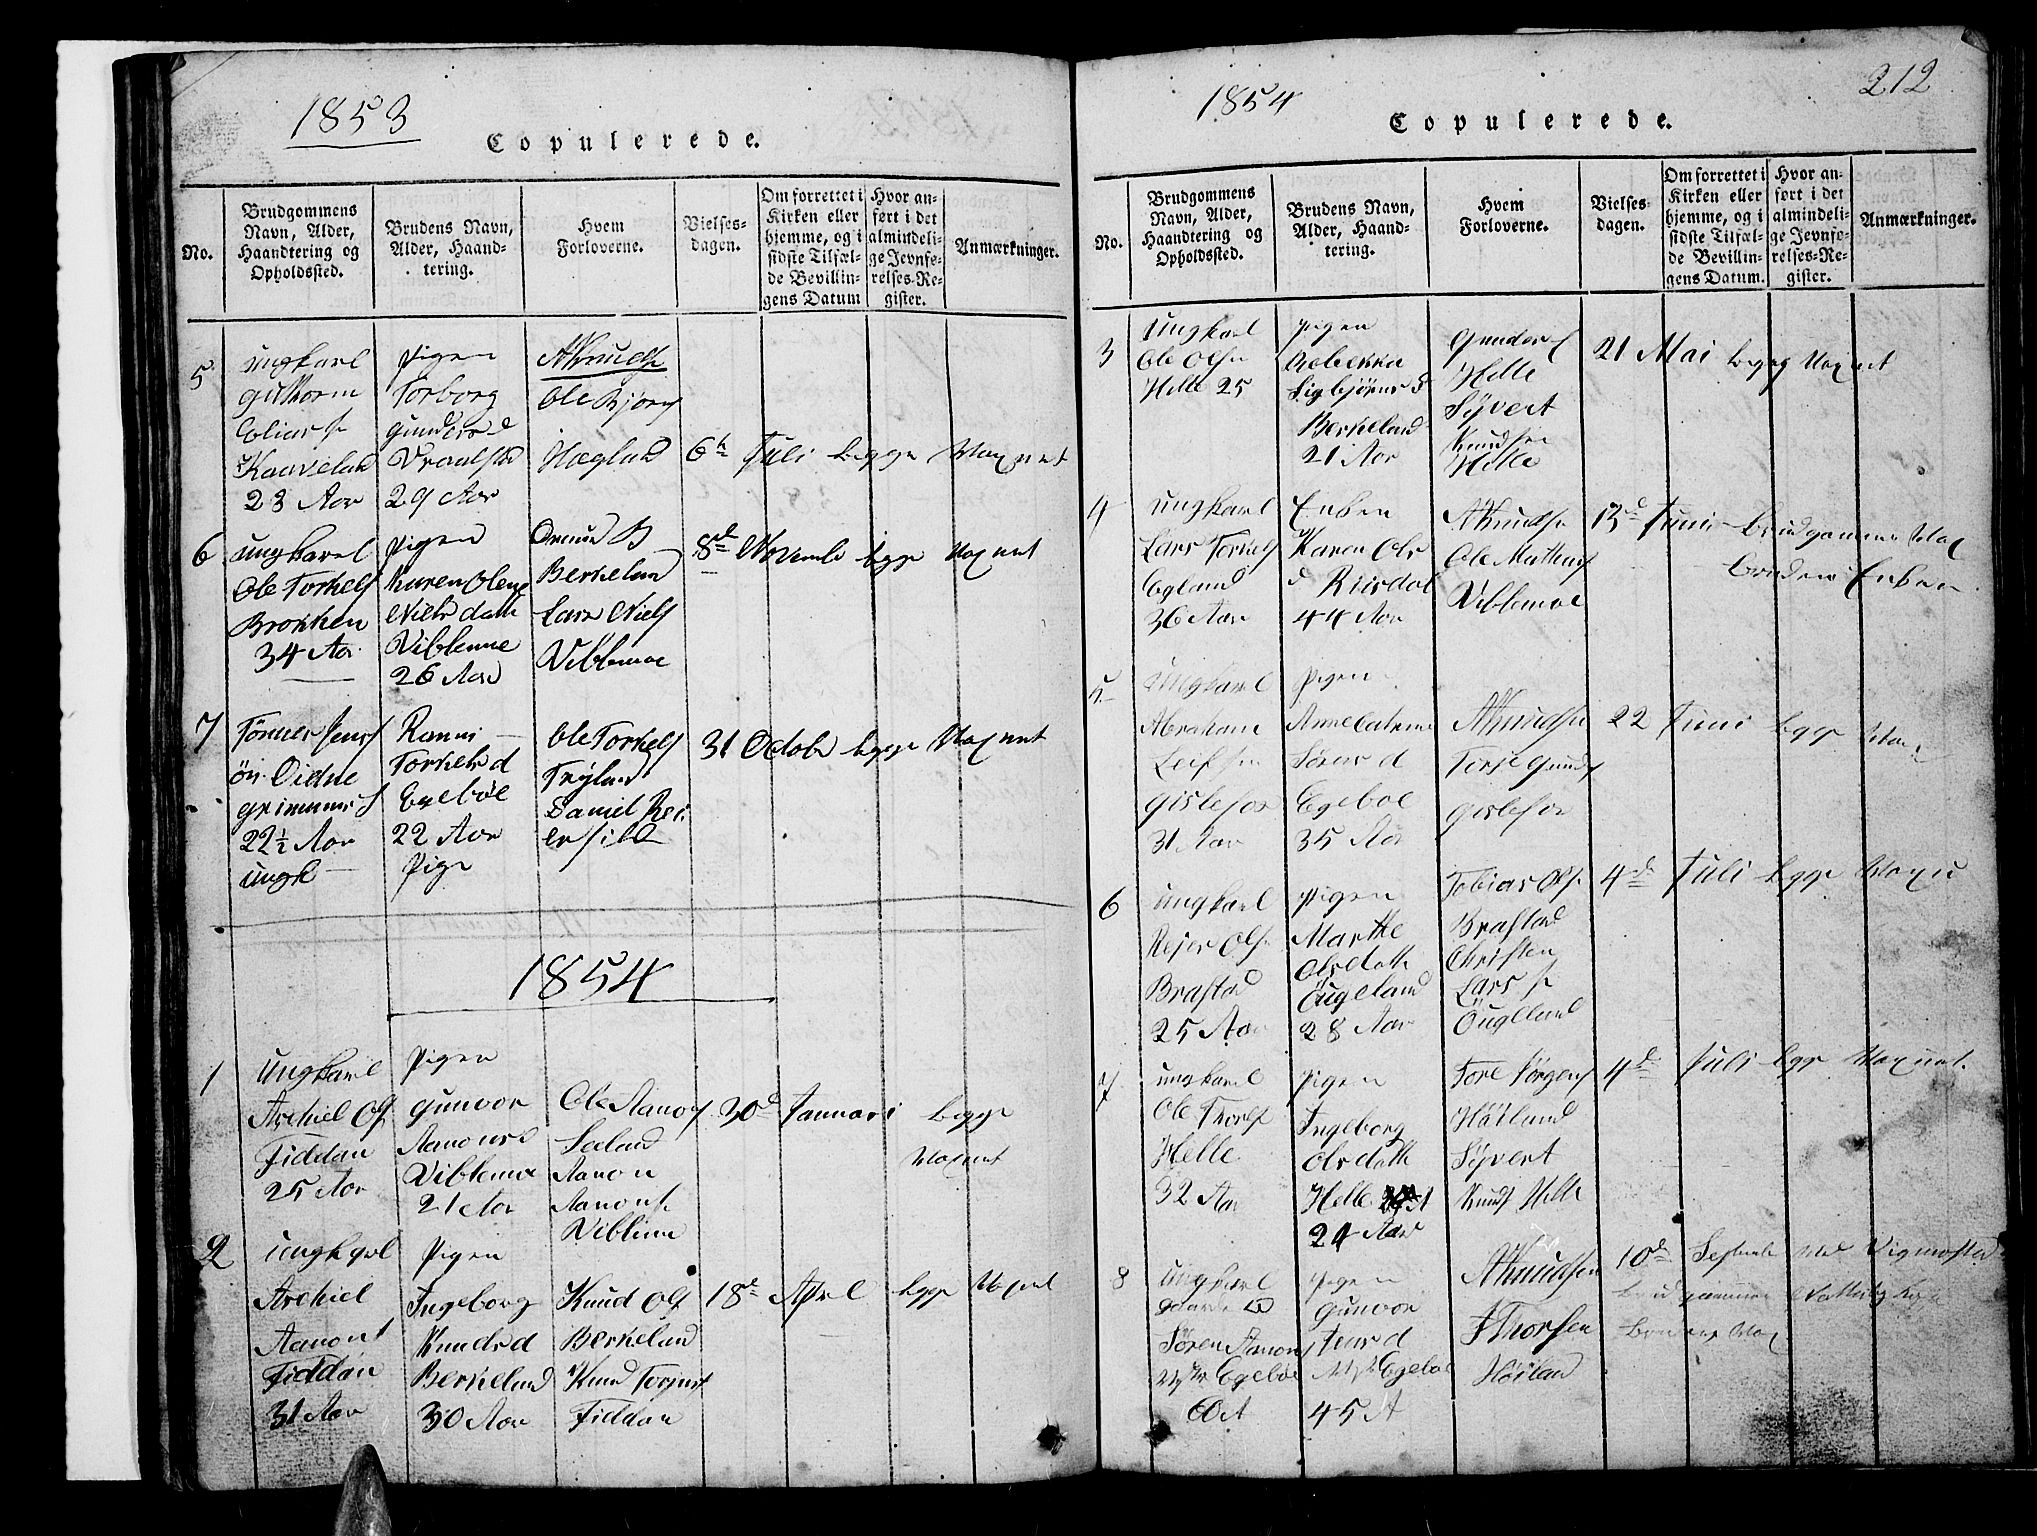 1853
Copulerede.
No.
Brudgommens
Navn, Alder,
Haandtering og
Opholdssted.
Brudens Navn,
Alder, Haand-
tering.
Hvem
Forloverne.
Vielses-
dagen.
Om forrettet i
Kirken eller
hjemme, og i
sidste Tilfæl-
de Bevillin-
gens Datum
Hvor an-
ført i det
almindeli-
ge Jevnfø-
relses-Re-
gister.
Anmærkninger.
5
ungkarl
Guthorm
Elias
Kaaveland
23 Aar
pigen
Torborg
Gunders d
29 Aar
AKnuds
Ole Bjorns
Hægland
6 Juli begge Vaxinet
6
ungkarel
Ole Torkels
Brokken
34 Aar
pigen
Karen Olene
Niels datt
Viblemoe
26 Aar
Omund B
Berkeland
Lars Niels
Viblemoe
8de Novemb begge Vaxinet
7
Tønnes Jens
Grimnes
22½ Aar
ungk
Ranni
Torkels d
Egeboe
22 Aar
pige
Ole Torkels
Tryland
Daniel Rei
31 October begge Vaxinet
1854
1
ungkarl
Archiel Ols
Fiddan
25 Aar
pigen
Gunvor
Aanons d
Viblemoe
21 Aar
Ole Aanons
Seeland
Aanon
Aanons
Viblemoe
30d Januari begge
Vaxinet
2
ungkarl
Archiel
Aanons
Fiddan
31 Aar
pigen
Ingeborg
Knuds d
Berkeland
30 Aar
Knud Ols
Berkeland
Knud
Fiddan
18de April begge Vaxinet
1854
212
Copulerede.
No.
Brudgommens
Navn, Alder,
Haandtering og
Opholdssted.
Brudens Navn,
Alder, Haand-
tering.
Hvem
Forloverne.
Vielses-
dagen.
Om forrettet i
Kirken eller
hjemme, og i
sidste Tilfæl-
de Bevillin-
gens Datum.
Hvor an-
ført i det
almindeli-
ge Jevnfø-
relses-Re-
gister.
Anmærkninger.
3
ungkarl
Ole Olsen
Helle 25
pigen
Rebekka
Sigbjørns d
Berkeland
21 Aar
Gunder
Helle
Syvert
Knudsen
Helle
21 Mai begge Vaxinet
4
ungkarl
Lars Torkels
Egland
36 Aar
Enken
Karen Ols
d Risdal
44 Aar
AKnudsen
Ole Mathias
Viblemoe
13de Juni brudgommen Vax
bruden Enken
5
ungkarl
Abraham
Leifsen
Gislefos
31 Aar
pigen
Anne Catrine
Sørens d
Egeboe
35 Aar
AKnudsen
Terje Gunds
Gislefos
22 Juni begge Vax
6
ungkarl
Reier Ols
Brastad
25 Aar
pigen
Marthe
Olsdatt
Öugeland
28 Aar
Tobias Ols
Brastad
Christen
Lars
Öugeland
4de Juli begge Vaxi
7
ungkarl
Ole Thors
Helle
32 Aar
pigen
Ingeborg
Olsdatt
Helle
24 Aar
Tore Jørgens
Håiland
Syvert
Knuds Helle
4de Juli begge Vaxinet
8
ungkarl
Søren Aanons
Egeboe
60 A
pigen
Gunvor
Jens d
Egeboe
45 A
AKnudsen
Thorsen
Håiland
10de Septemb Vigmostad
brudgommen
bruden Vax